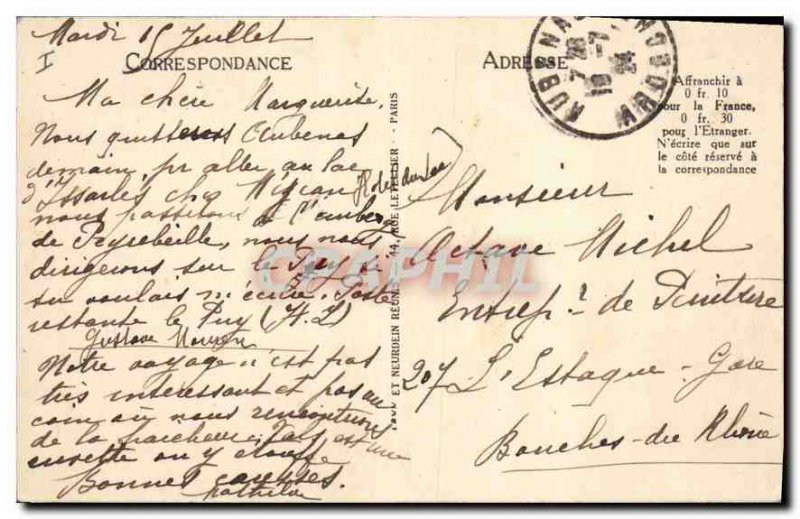 Mardi 15 Juillet
I
CORRESPONDANCE
Ma chère Marguerite,
Nous quitterons Aubenas
demain, pr aller au lac
d'Issarlès chez (Hotel du Lac)
nous passerons à l'auberge
de Peyrebeille, nous nous
dirigerons sur le Puy si
tu voulais m'écrire, Poste
restante le Puy (H.L)
Gustave
Notre voyage n'est pas
très interessant et pas un
coin où nous rencontrions
de la fraicheur, est une
cuvette on y étouffe
Bonnes caresses.
Mathilde
LEVY ET NEURDEIN RÉUNIS 44, RUE LETELLIER - PARIS
ADRESSE
AUBENAS
7 28
10 -7
34
Affranchir à
0 fr. 10
pour la France,
0 fr. 30
pour l'Etranger.
N'écrire que sur
le côté réservé à
la correspondance
Monsieur
Octave Michel
Entrepr de Peinture
207 L'Estaque - Gare
Bouches-du-Rhône
CPAPHIL